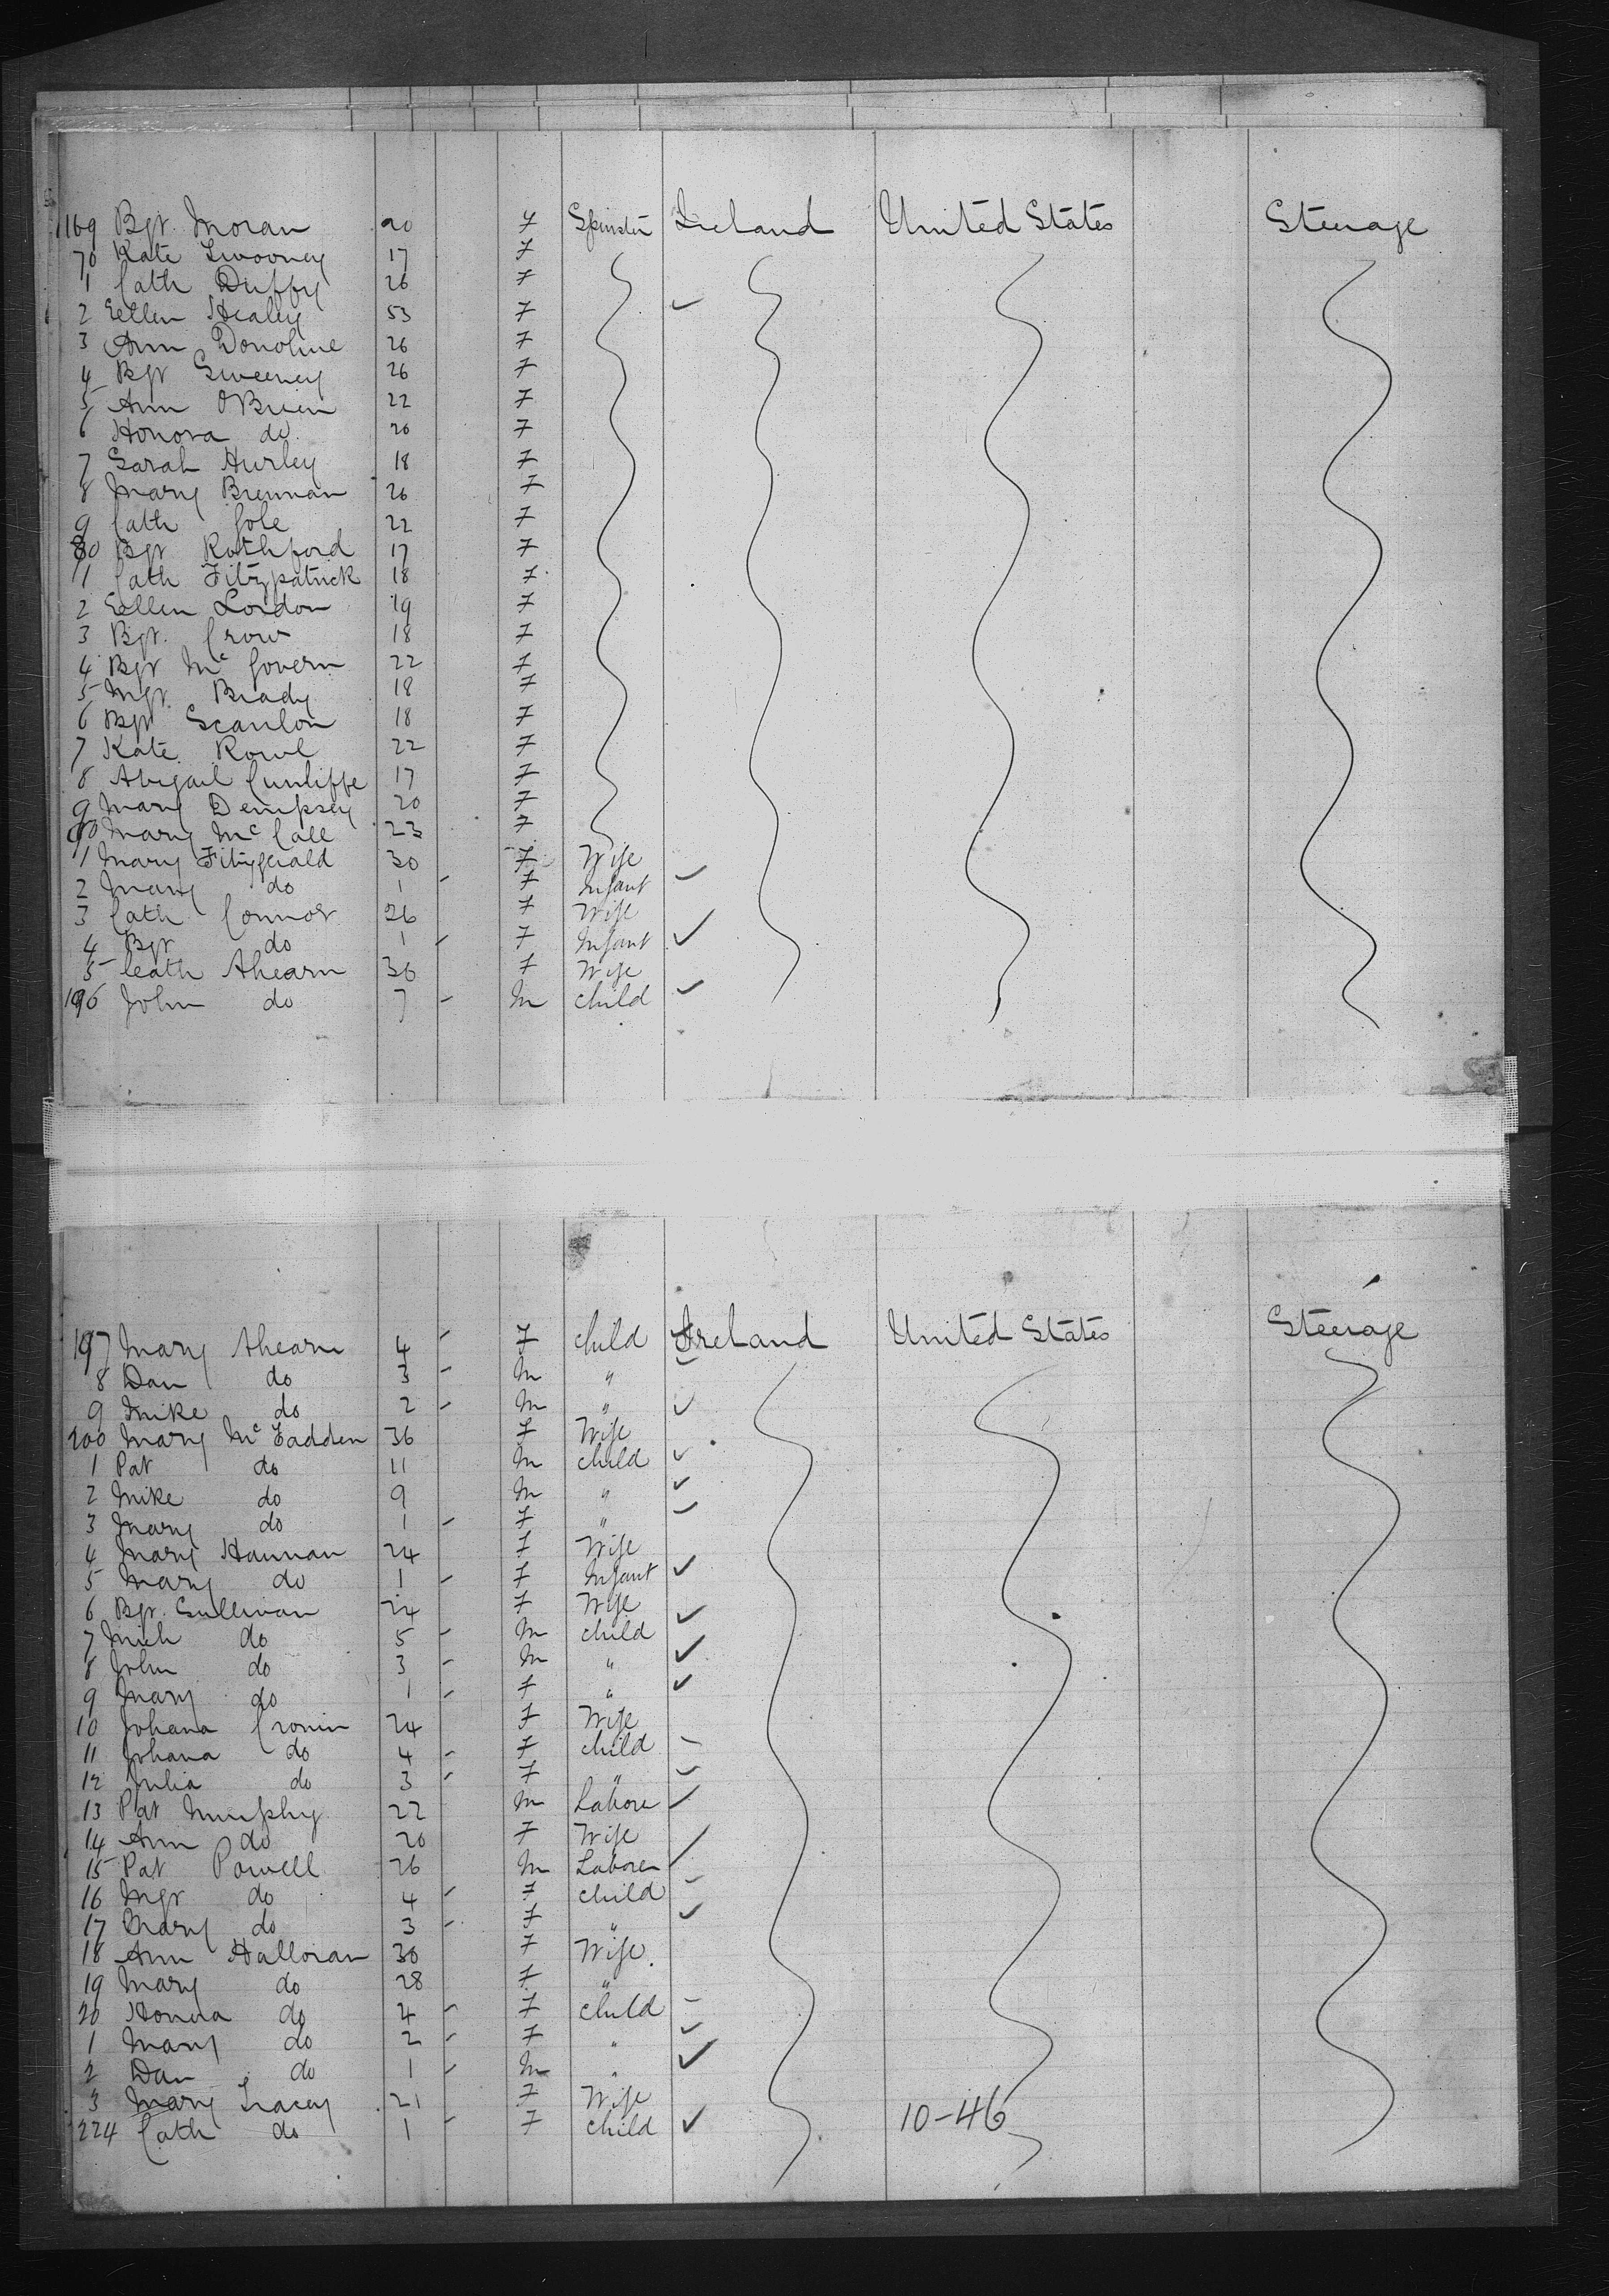 169 Bgt. Moran 20 F Spinster Ireland United States Steerage
70 Kate Swooney 17 F
1 Cath Duffy 26 F
2 Eellen Healey 53 F ✓
3 Ann Donohue 26 F
4 Bgt Sweeney 26 F
5 Ann OBrien 22 F
6 Honora do 20 F
7 Sarah Hurley 18 F
8 Mary Brennan 26 F
9 Cath Cole 22 F
80 Bgt Rothford 17 F
1 Cath Fitzpatrick 18 F
2 Eellen London 19 F
3 Bgt. Crow 18 F
4 Bgt McGovern 22 F
5 Mgt. Brady 18 F
6 Bgt Scanlon 18 F
7 Kate Rowe 22 F
8 Abigail Cunliffe 17 F
9 Mary Dempsey 20 F
90 Mary McCall 23 F
1 Mary Fitzgerald 30 F Wife
2 Mary do 1 F Infant ✓
3 Cath Connor 26 F Wife
4 Bgt do 1 F Infant ✓
5 Ceath Ahearn 36 F Wife
196 John do 7 M Child ✓
197 Mary Ahearn 4 F Child Ireland United States Steerage
8 Dan do 3 M " ✓
9 Mike do 2 M " ✓
200 Mary McFadden 36 F Wife
1 Pat do 11 M Child ✓
2 Mike do 9 M " ✓
3 Mary do 1 F " ✓
4 Mary Hannan 24 F Wife
5 Mary do 1 F Infant ✓
6 Bgt. Sullivan 24 F Wife
7 Mich do 5 M Child ✓
8 John do 3 M " ✓
9 Mary do 1 F " ✓
10 Johana Cronin 24 F Wife
11 Johana do 4 F Child
12 Julia do 3 F " ✓
13 Pat Murphy 22 M Labore
14 Ann do 20 F Wife
15 Pat Powell 26 M Laborer
16 Mgt do 4 F Child
17 Mary do 3 F " ✓
18 Ann Halloran 30 F Wife.
19 Mary do 28 F "
20 Honora do 4 F Child
1 Mary do 2 F " ✓
2 Dan do 1 M " ✓
3 Mary Tracey 21 F Wife
224 Cath do 1 F Child ✓ 10-46